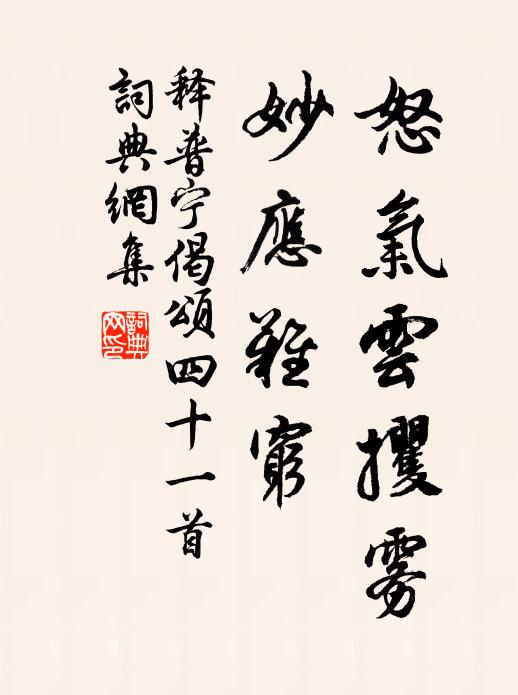 怒氣雲攫霧
妙應難窮
释普宁偈頌四十一首
詞典網集
詞典
网印